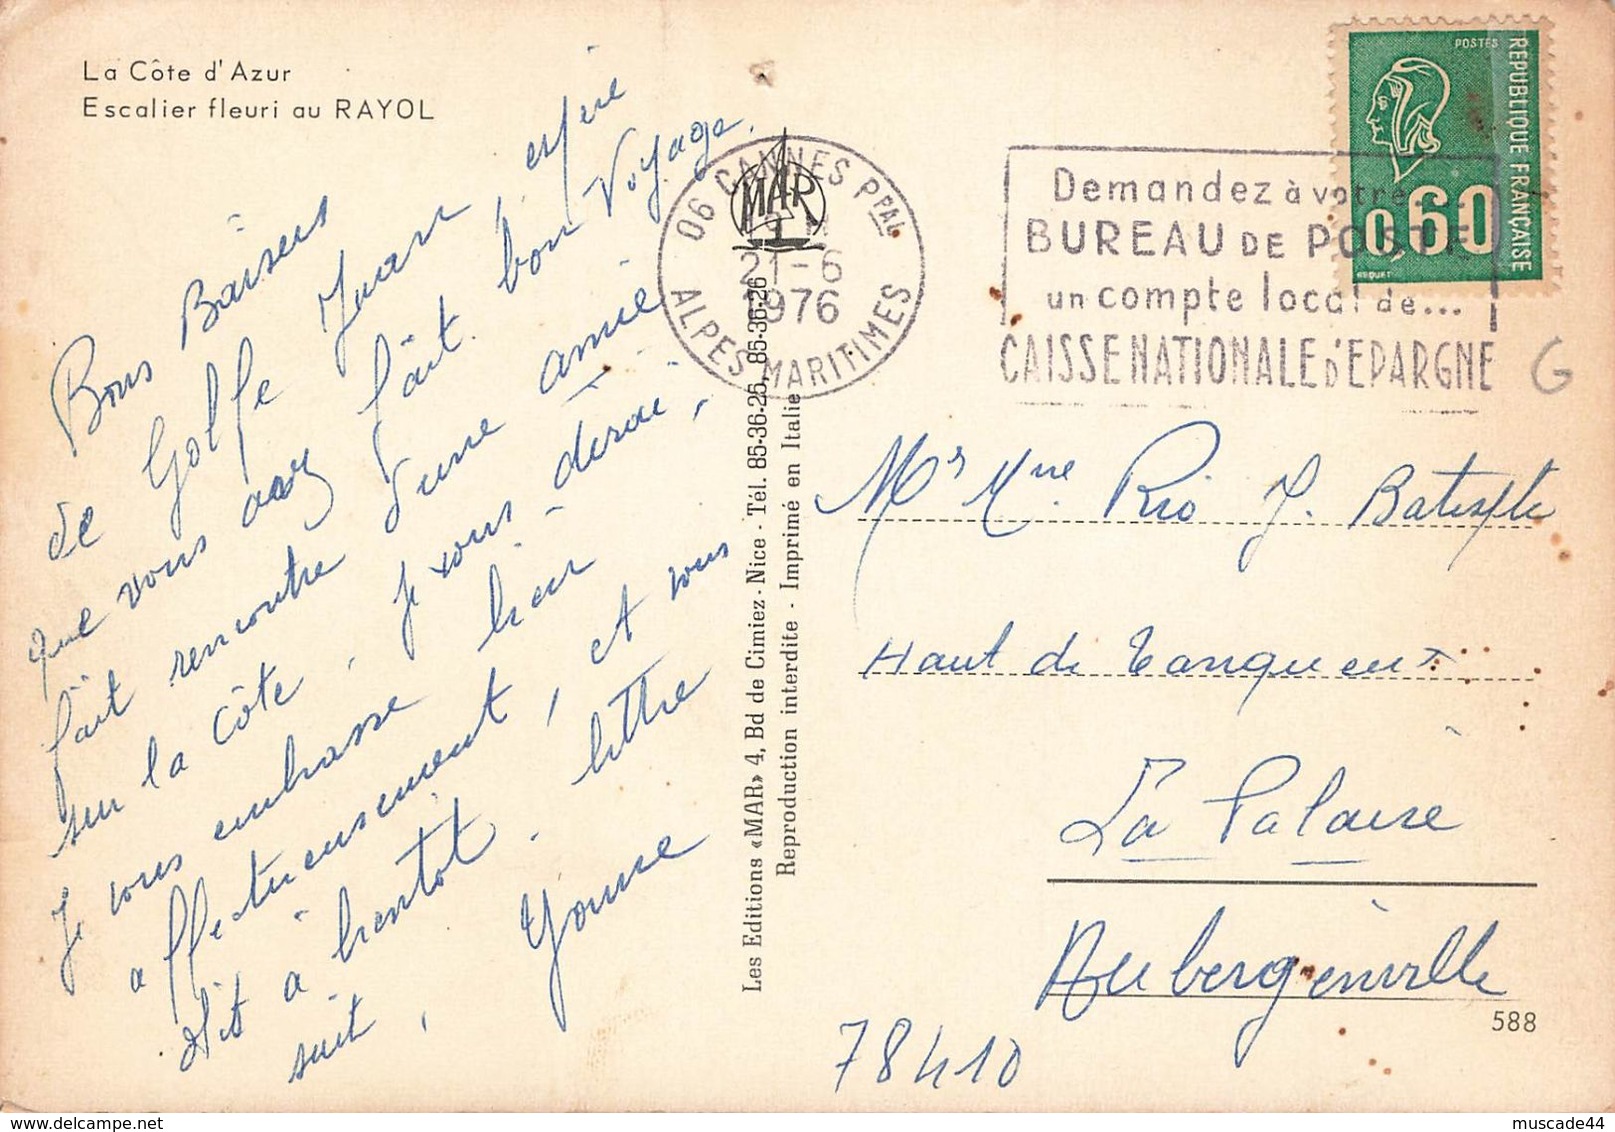 La Côte d'Azur
Escalier fleuri au RAYOL
Bons Baisers
de Golfe Juan,
que vous avez fait bon Voyage.
fait rencontre d'une amie
sur la côte, je vous dirai,
Je vous embrasse bien
affectueusement, et vous
dit à bientôt. lettre
suit,
Yonne
Les Editions «MAR» 4, Bd de Cimiez - Nice - Tél. 85-36-25, 85-36-26
Reproduction interdite - Imprimé en Italie
MAR
06 CANNES PPAL
21-6
1976
ALPES MARITIMES
Demandez à votre...
BUREAU DE POSTE
un compte local de...
CAISSE NATIONALE D'EPARGNE
POSTES
REPUBLIQUE FRANÇAISE
0,60
BEQUET
G
Mr Mme Rio J. Batiste
Haut de
La Palaise
Aubergenville
588
78410
muscade44